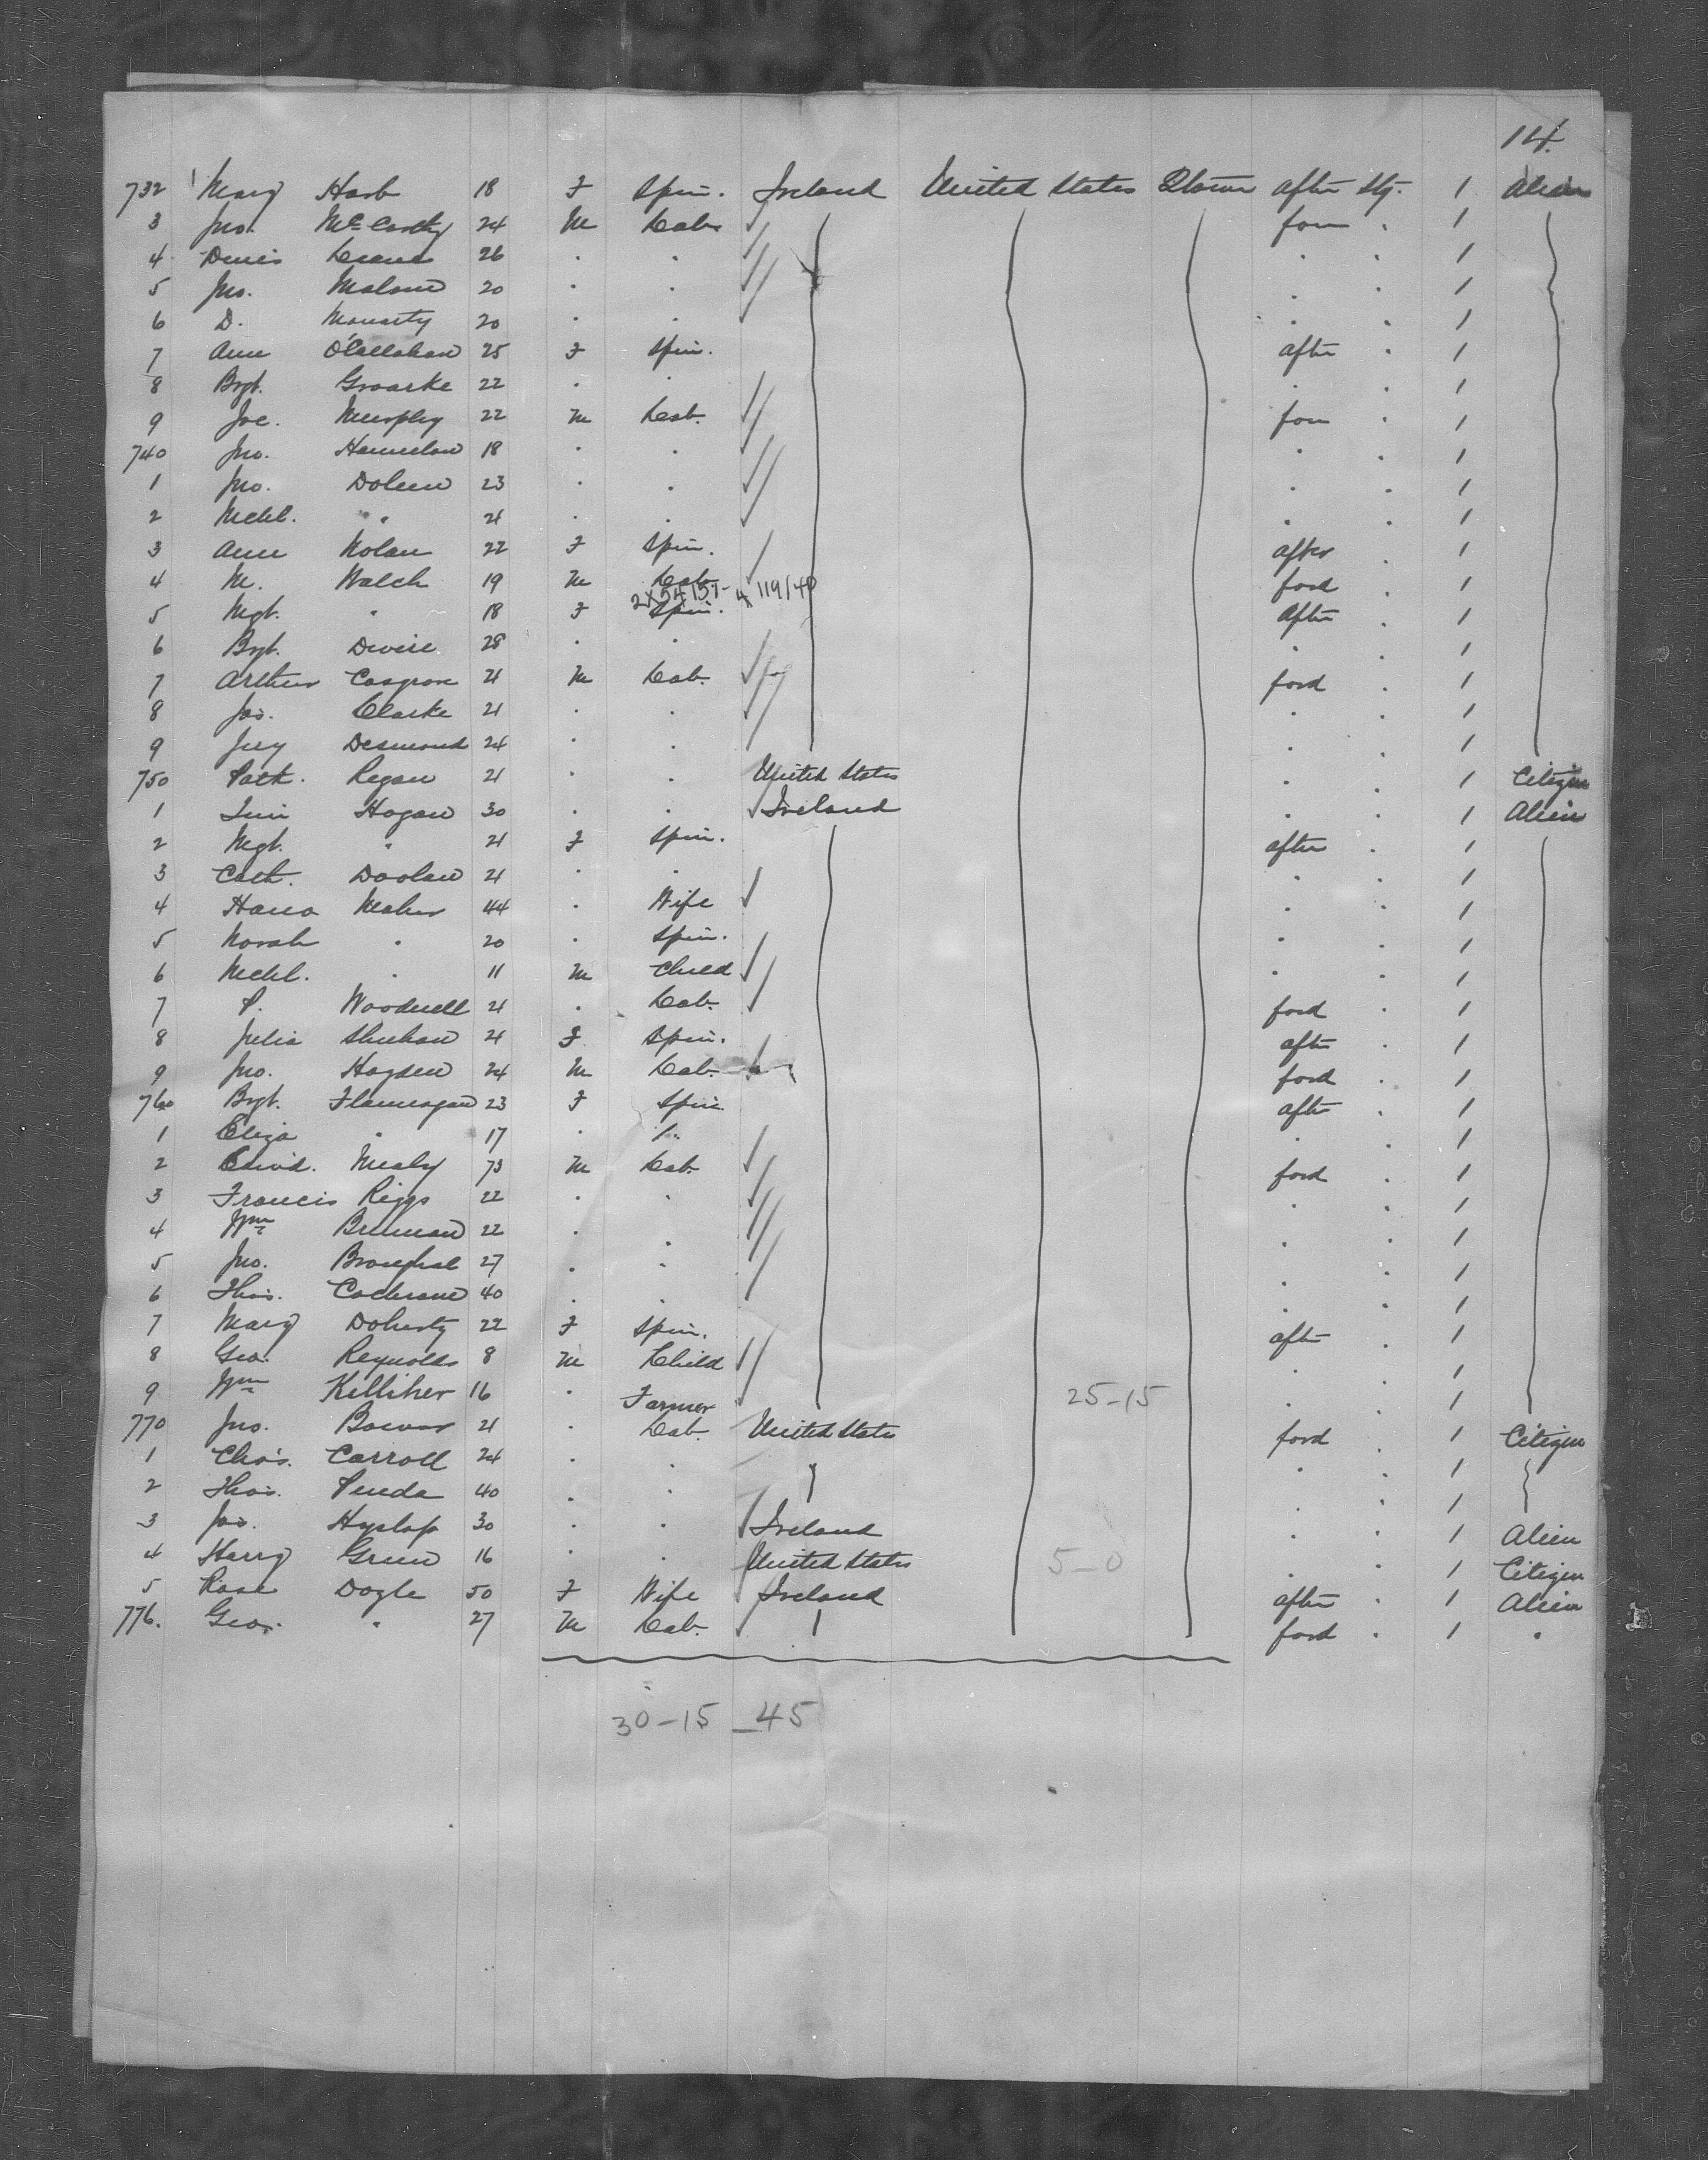 14.
732 Mary Harb 18 F Spin. Ireland United States Qtown after Stg. 1 Alien
3 Jno. McCarthy 24 M Lab. 1
4 Denis 26 . . . . 1
5 Jno. Malone 20 . . . . 1
6 D. Moriarty 20 . . . . 1
7 Ann O'Callahan 25 F Spin. after . 1
8 Bgt. Groarke 22 . . . . 1
9 Joe. Murphy 22 M Lab. . 1
740 Jno. 18 . . . . 1
1 Jno. Dolan 23 . . . . 1
2 Mchl. " 21 . . . . 1
3 Ann Nolan 22 F Spin. after . 1
4 M. Walch 19 M Lab. ford . 1
2X54 151- 119/40
5 Mgt. " 18 F Spin. After . 1
6 Bgt. 28 . . . . 1
7 Arthur Cosgrove 21 M Lab. ford . 1
8 Jas. Clarke 21 . . . . 1
9 Jery Desmond 24 . . . . 1
750 Patk. Regan 21 . . United States . . 1 Citizen
1 Hogan 30 . . Ireland . . 1 Alien
2 Mgt. " 21 F Spin. after . 1
3 Cath. Doolan 21 . . . . 1
4 Hana Maher 44 . Wife . . 1
5 Norah " 20 . Spin. . . 1
6 Mchl. " 11 M Child . . 1
7 P. Woodnell 21 . Lab. ford . 1
8 Julia Shehan 21 F Spin. after . 1
9 Jno. Hogden 24 M Lab. ford . 1
760 Bgt. Flannagan 23 F Spin. after . 1
1 Eliza " 17 . . . . 1
2 Edwd. Mealy 73 M Lab. ford . 1
3 Francis Riggs 22 . . . . 1
4 Wm Brennan 22 . . . . 1
5 Jno. Broughal 27 . . . . 1
6 Thos. Cochrane 40 . . . . 1
7 Mary Doherty 22 F Spin. after . 1
8 Geo. Reynolds 8 M Child . . 1
9 Wm Killiher 16 . Farmer 25-15 . . 1
770 Jno. 21 . Lab. United States ford . 1 Citizen
1 Chas. Carroll 24 . . . . 1
2 Thos. Penda 40 . . . . 1
3 Jas. Hyslop 30 . . Ireland . . 1 Alien
4 Harry Green 16 . . United States 5-0 . . 1 Citizen
5 Rose Doyle 50 F Wife Ireland after . 1 Alien
776. Geo. " 27 M Lab. ford . 1 "
30-15-45